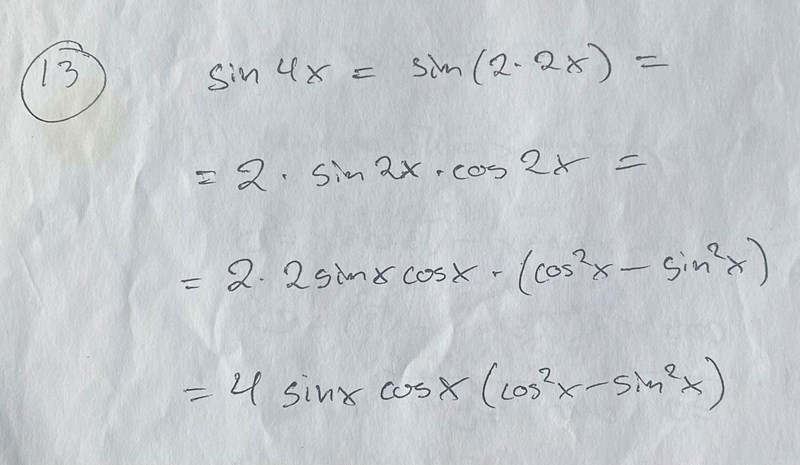 13 sin 4x = sin(2·2x) =
= 2 · sin 2x · cos 2x =
= 2 · 2 sinx cosx · (cos²x − sin²x)
= 4 sinx cosx (cos²x − sin²x)